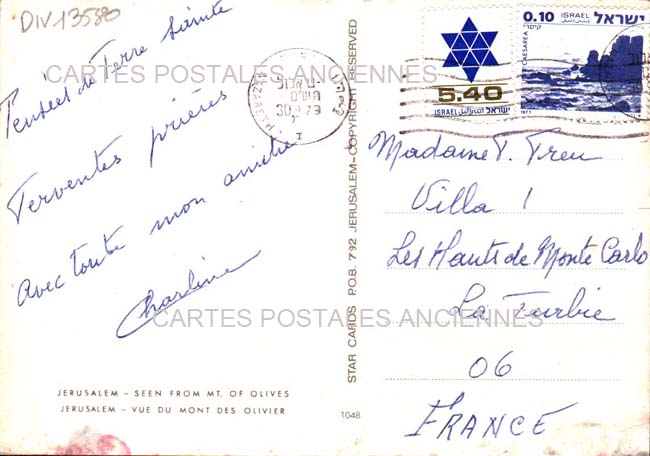 DIV13580
Pensées de Terre Sainte
Ferventes prières
avec toute mon amitié
Charline
CARTES POSTALES ANCIENNES
CARTES POSTALES ANCIENNES
JERUSALEM – SEEN FROM MT. OF OLIVES
JERUSALEM – VUE DU MONT DES OLIVIER
1048
STAR CARDS P.O.B. 792 JERUSALEM–COPYRIGHT RESERVED
NAZARE
30 79
5.40
ISRAEL اسرائيل ישראל
0.10 ISRAEL ישראל
اسرائيل
קיסרי
CAESAREA
1977
Madame P. Treu
Villa 1
Les Hauts de Monte Carlo
La Turbie
06
FRANCE